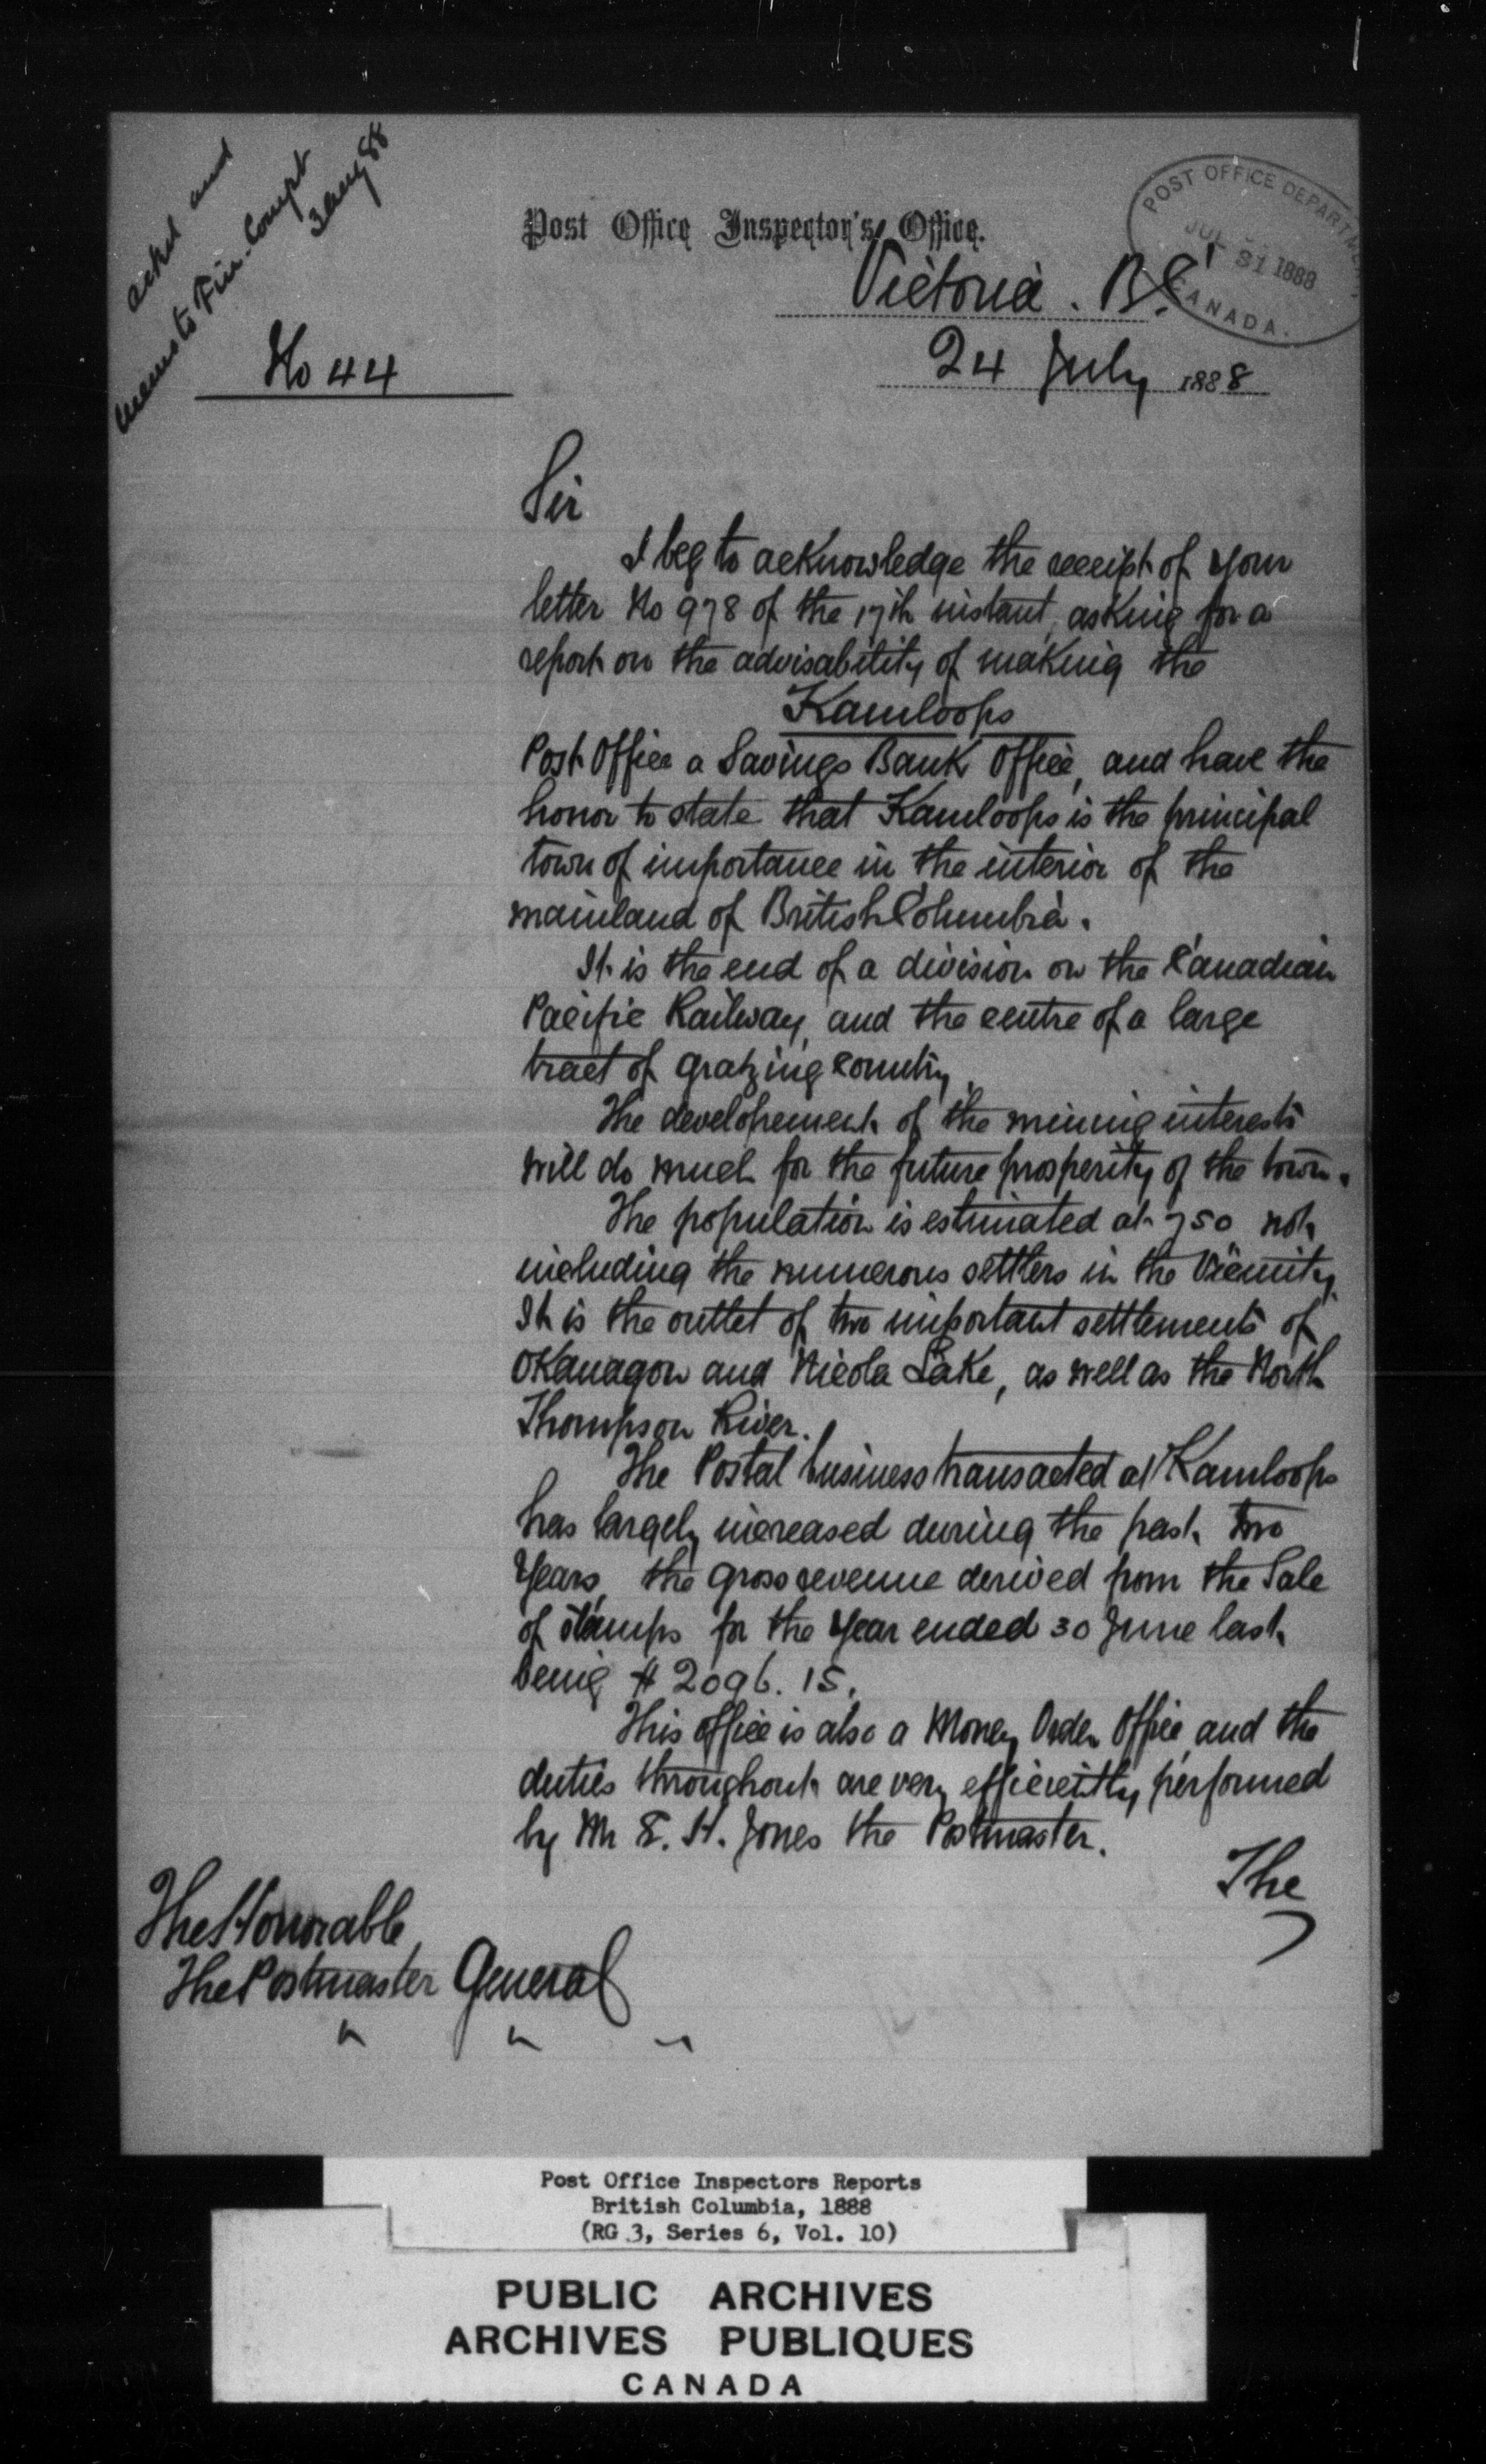 ackd and
memo to Fin. Compt
3 Aug 88
Post Office Inspector's Office.
POST OFFICE DEPARTMENT
JUL 31 1888
CANADA.
Victoria. B.C.
24 July 1888
No 44
Sir
I beg to acknowledge the receipt of your
letter No 978 of the 17th instant, asking for a
report on the advisability of making the
Kamloops
Post Office a Savings Bank Office, and have the
honor to state that Kamloops is the principal
town of importance in the interior of the
mainland of British Columbia.
It is the end of a division on the Canadian
Pacific Railway, and the centre of a large
tract of gratzing country.
The developement of the mining interests
will do much for the future prosperity of the town.
The population is estimated at 750 not
including the numerous settlers in the Vicinity.
It is the outlet of two important settlements of
Okanagon and Nicola Lake, as well as the North
Thompson River.
The Postal business transacted at Kamloops
has largely increased during the past two
Years, the gross revenue derived from the Sale
of stamps for the Year ended 30 June last
being $2096.15.
This office is also a Money Order Office, and the
duties throughout are very efficiently performed
by Mr E. H. Jones the Postmaster.
The
The Honorable
The Postmaster General
" " "
Post Office Inspectors Reports
British Columbia, 1888
(RG 3, Series 6, Vol. 10)
PUBLIC ARCHIVES
ARCHIVES PUBLIQUES
CANADA